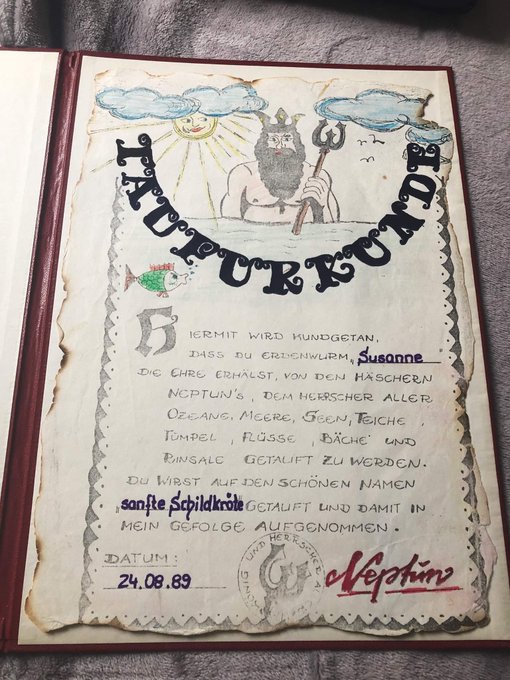 TAUFURKUNDE
HIERMIT WIRD KUNDGETAN,
DASS DU ERDENWURM, Susanne
DIE EHRE ERHÄLST, VON DEN HÄSCHERN
NEPTUN'S, DEM HERRSCHER ALLER
OZEANE, MEERE, SEEN, TEICHE,
TÜMPEL, FLÜSSE, BÄCHE UND
RINSALE GETAUFT ZU WERDEN.
DU WIRST AUF DEN SCHÖNEN NAMEN
sanfte Schildkröte GETAUFT UND DAMIT IN
MEIN GEFOLGE AUFGENOMMEN.
DATUM:
24.08.89
KÖNIG UND HERRSCHER
Neptun